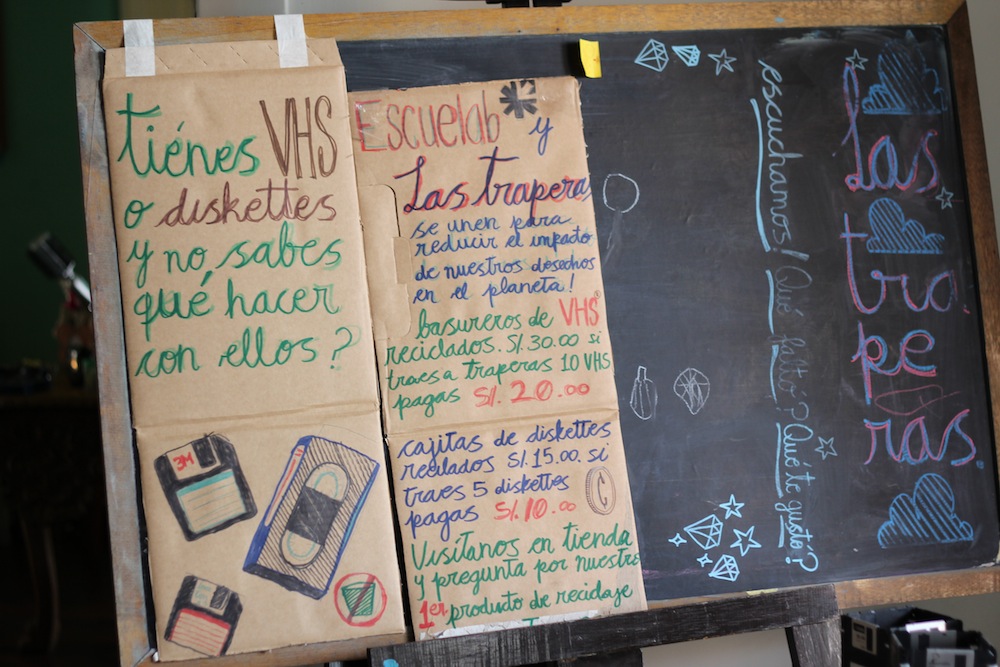 tiénes VHS
o diskettes
y no sabes
qué hacer
con ellos?
3M
Escuelab*
y
Las traperas
se unen para
reducir el impacto
de nuestros desechos
en el planeta!
basureros de VHS
reciclados. S/. 30.00 si
traes a traperas 10 VHS
pagas S/. 20.00
cajitas de diskettes
recilados S/. 15.00. si
traes 5 diskettes
pagas S/. 10.00
Visítanos en tienda
y pregunta por nuestro
1er producto de reciclaje
escuchamos! Qué faltó? Qué te gustó?
las
tra
pe
ras.